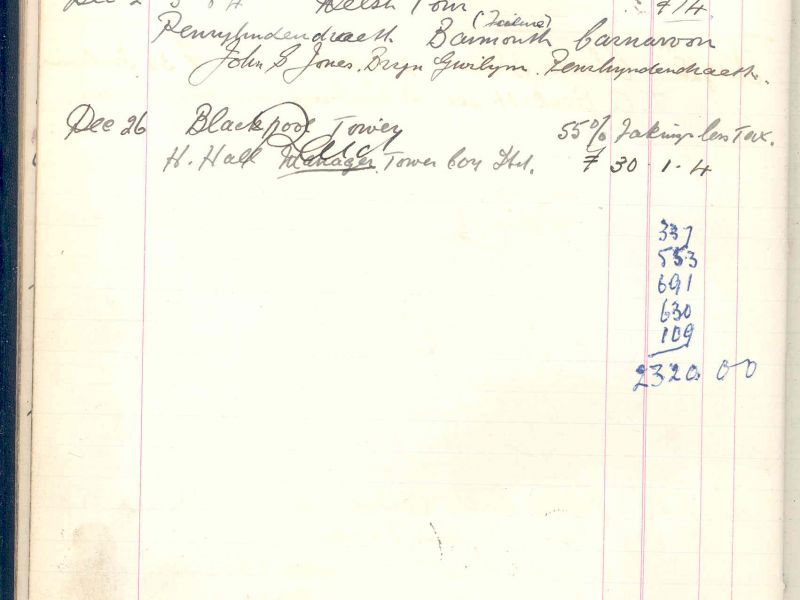 Dec 2 3 & 4 Welsh Tour 7/4
(Failure)
Penryhndendraeth Barmouth Carnarvon
John S Jones. Bryn Gwilym. Penrhyndendraeth.
Dec 26 Blackpool Tower 55% Takings less Tax.
H. Hall Manager. Tower Coy Ltd. £ 30 . 1 . 4
337
553
691
630
109
2320 00